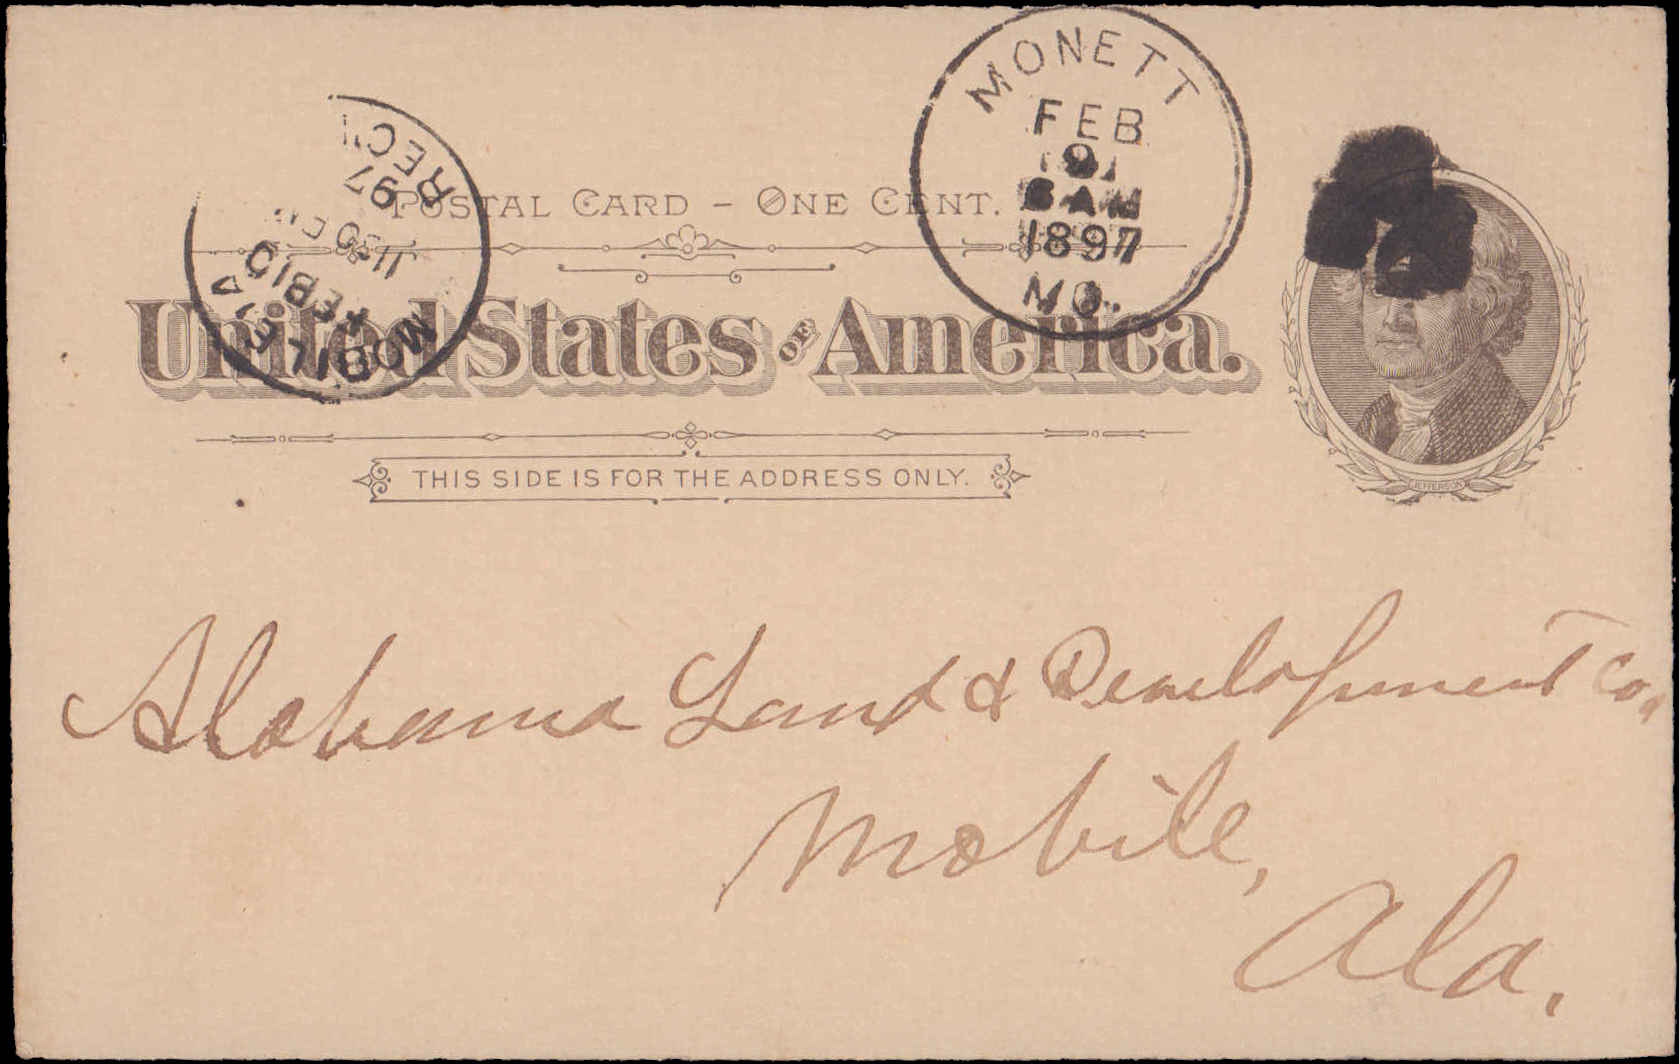 MONETT
FEB
9
6 AM
1897
MO.
MOBILE
FEB 10
11 30
97
REC'D
POSTAL CARD – ONE CENT.
United States OF America.
THIS SIDE IS FOR THE ADDRESS ONLY.
JEFFERSON
Alabama Land & Development Co.
Mobile,
Ala.